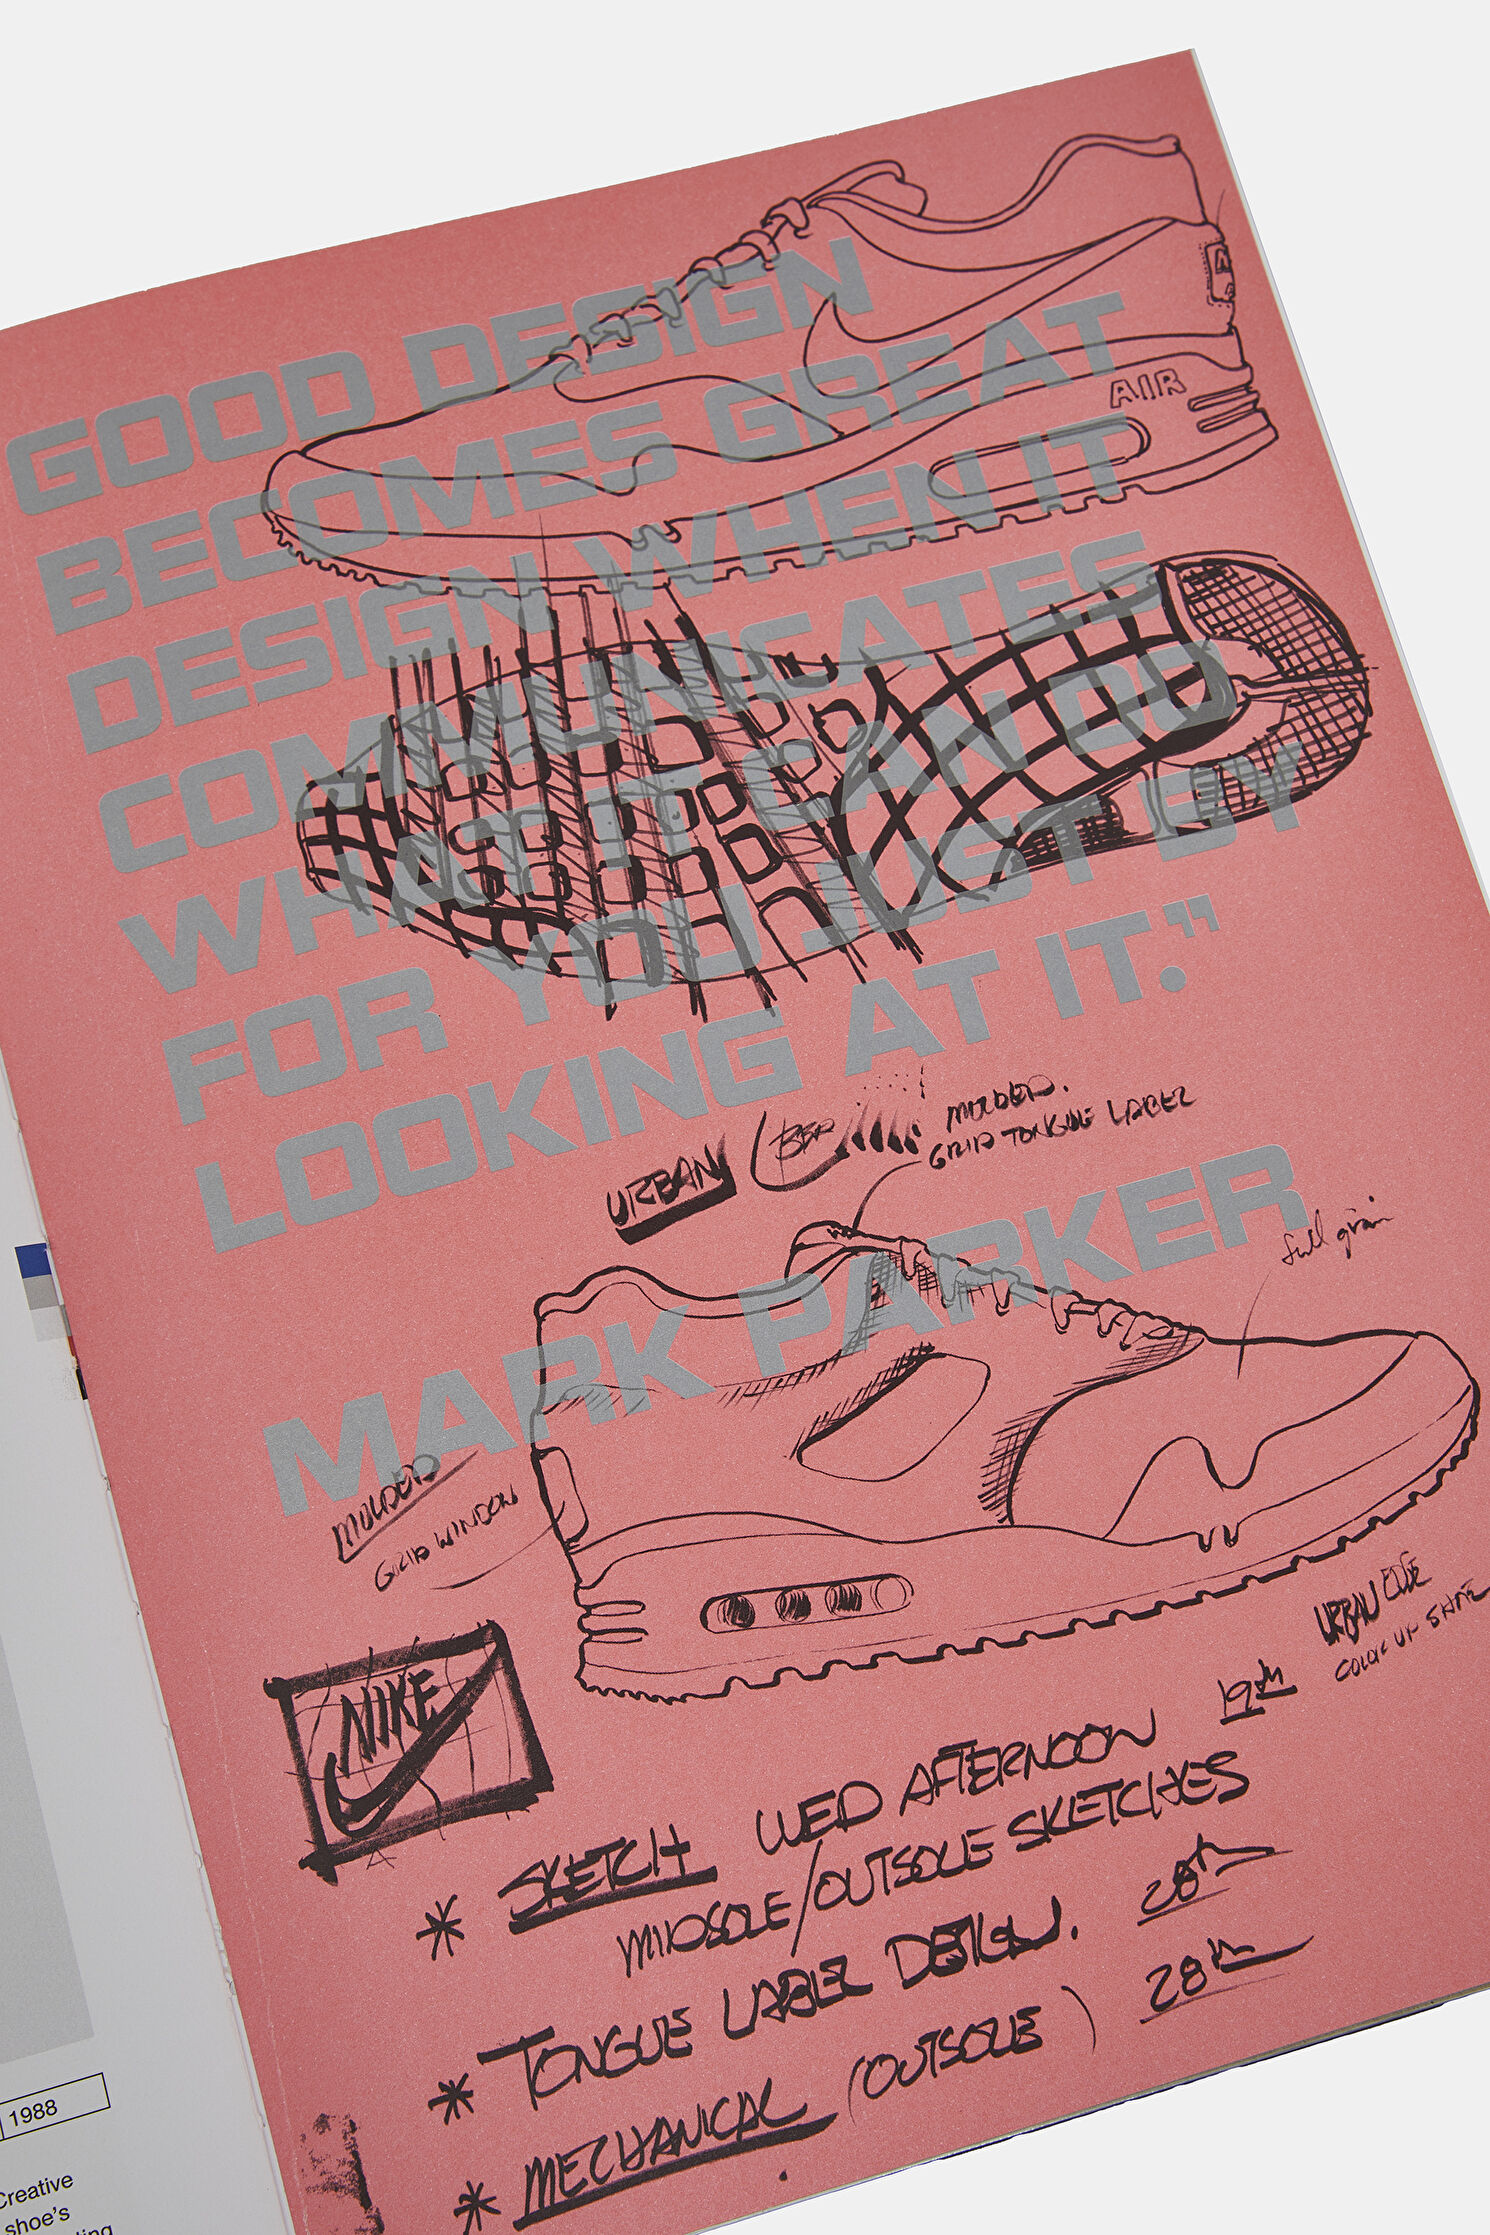 GOOD DESIGN
BECOMES GREAT
DESIGN WHEN IT
COMMUNICATES
WHAT IT CAN DO
FOR YOU JUST BY
LOOKING AT IT.”
MARK PARKER
AIR
URBAN
MOLDED.
GRID TONGUE LABEL
full grain
MOLDED
GRID WINDOW
URBAN EDGE
COLOR UP
NIKE
* SKETCH WED AFTERNOON 19th
MIDSOLE/OUTSOLE SKETCHES
* TONGUE LABEL DESIGN. 28th
* MECHANICAL (OUTSOLE) 28th
1988
Creative
shoe's